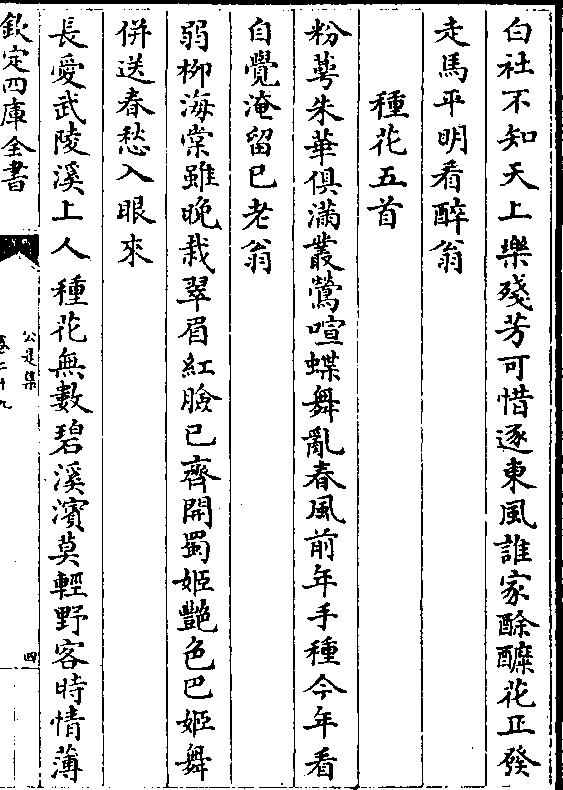 白社不知天上樂殘芳可惜逐東風誰家酴醿花正發
走馬平明看醉翁
種花五首
粉萼朱華俱滿叢鶯喧蝶舞亂春風前年手種今年看
自覺淹留已老翁
弱柳海棠雖晚栽翠眉紅臉已齊開蜀姬豔色巴姬舞
併送春愁入眼來
長愛武陵溪上人種花無數碧溪濱莫輕野客時情薄
欽定四庫全書
公是集
卷二十九
四